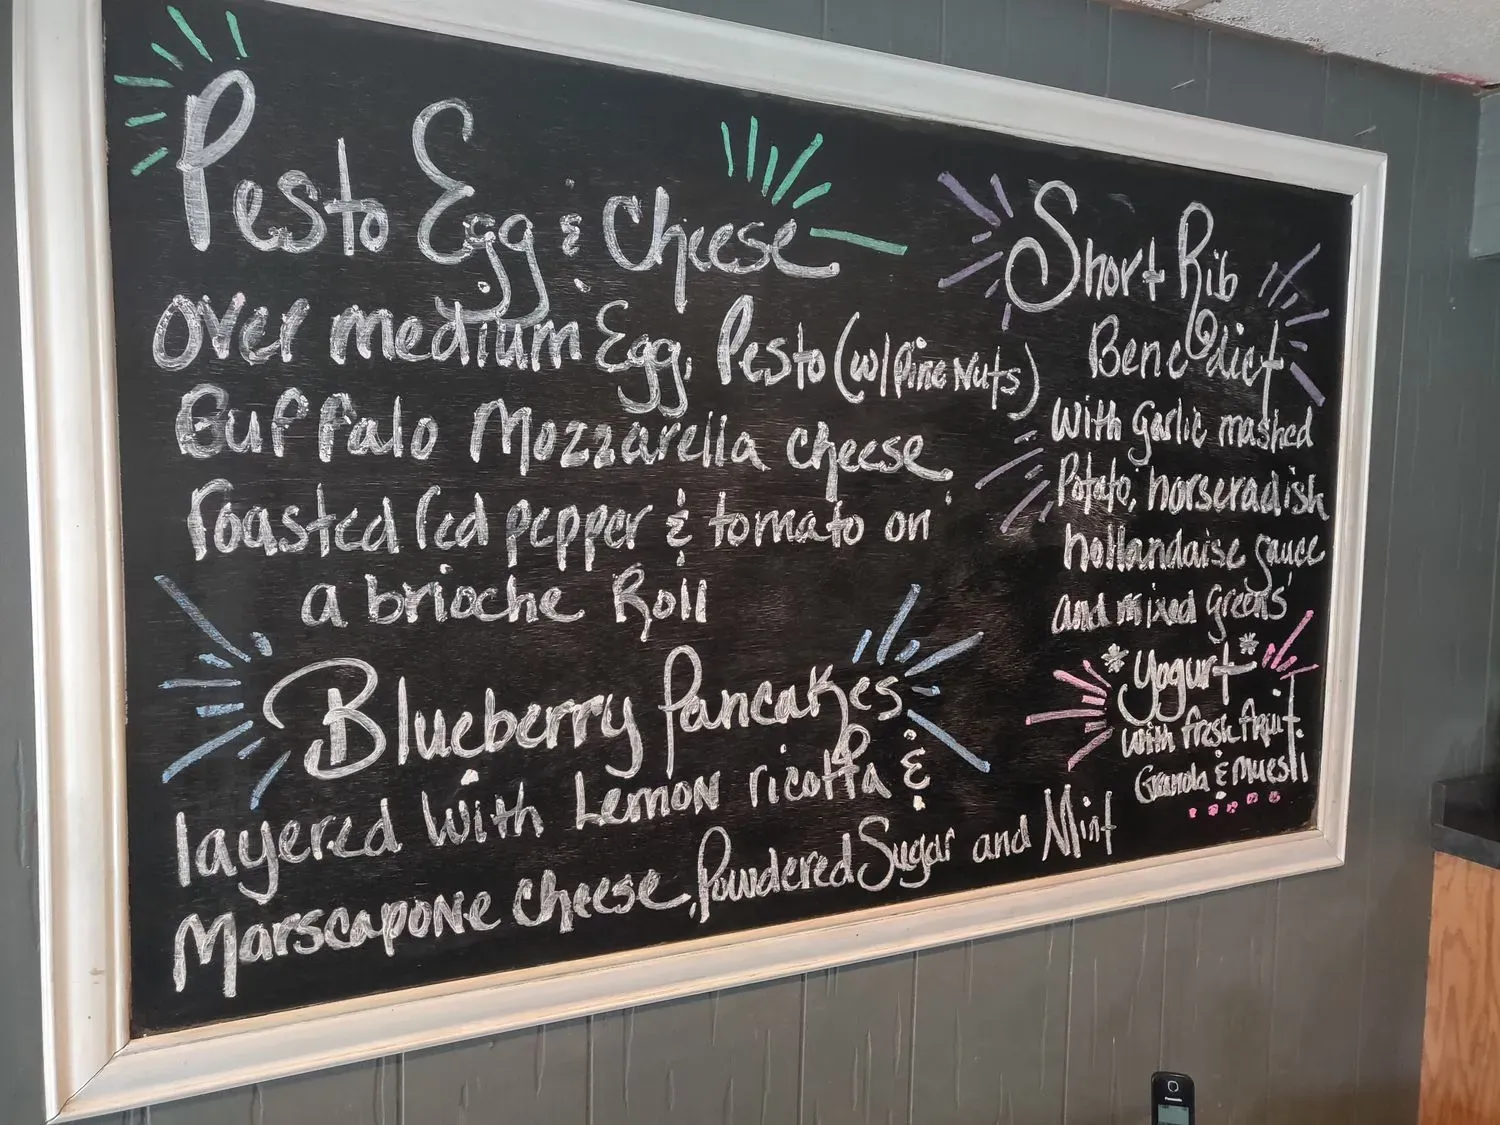 Pesto Egg & Cheese
over medium Egg, Pesto (w/pine Nuts)
Buffalo Mozzarella cheese
roasted red pepper & tomato on
a brioche Roll
Blueberry Pancakes
layered with Lemon ricotta &
Marscapone cheese, Powdered Sugar and Mint
Short Rib
Benedict
with garlic mashed
Potato, horseradish
hollandaise sauce
and mixed greens
*Yogurt*
with fresh fruit.
Granola & muesli
Panasonic